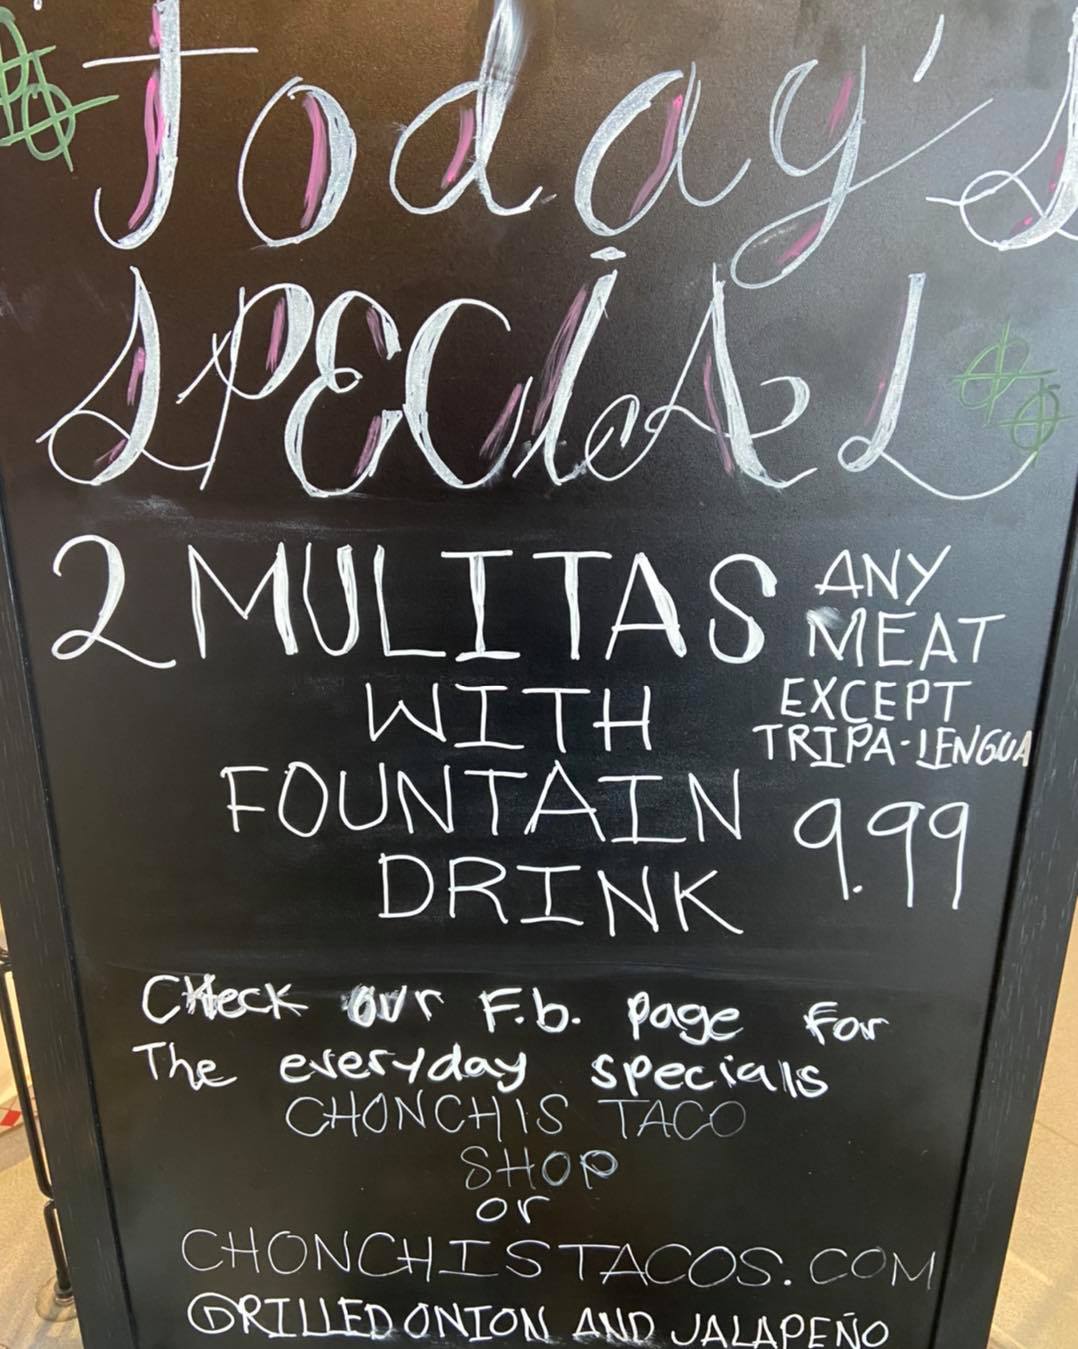 Today's
SPECiAL
2 MULITAS ANY
MEAT
EXCEPT
TRIPA-LENGUA
WITH
FOUNTAIN
DRINK
9.99
CHeck our F.b. page for
The everyday specials
CHONCHIS TACO
SHOP
or
CHONCHISTACOS.COM
GRILLED ONION AND JALAPEÑO